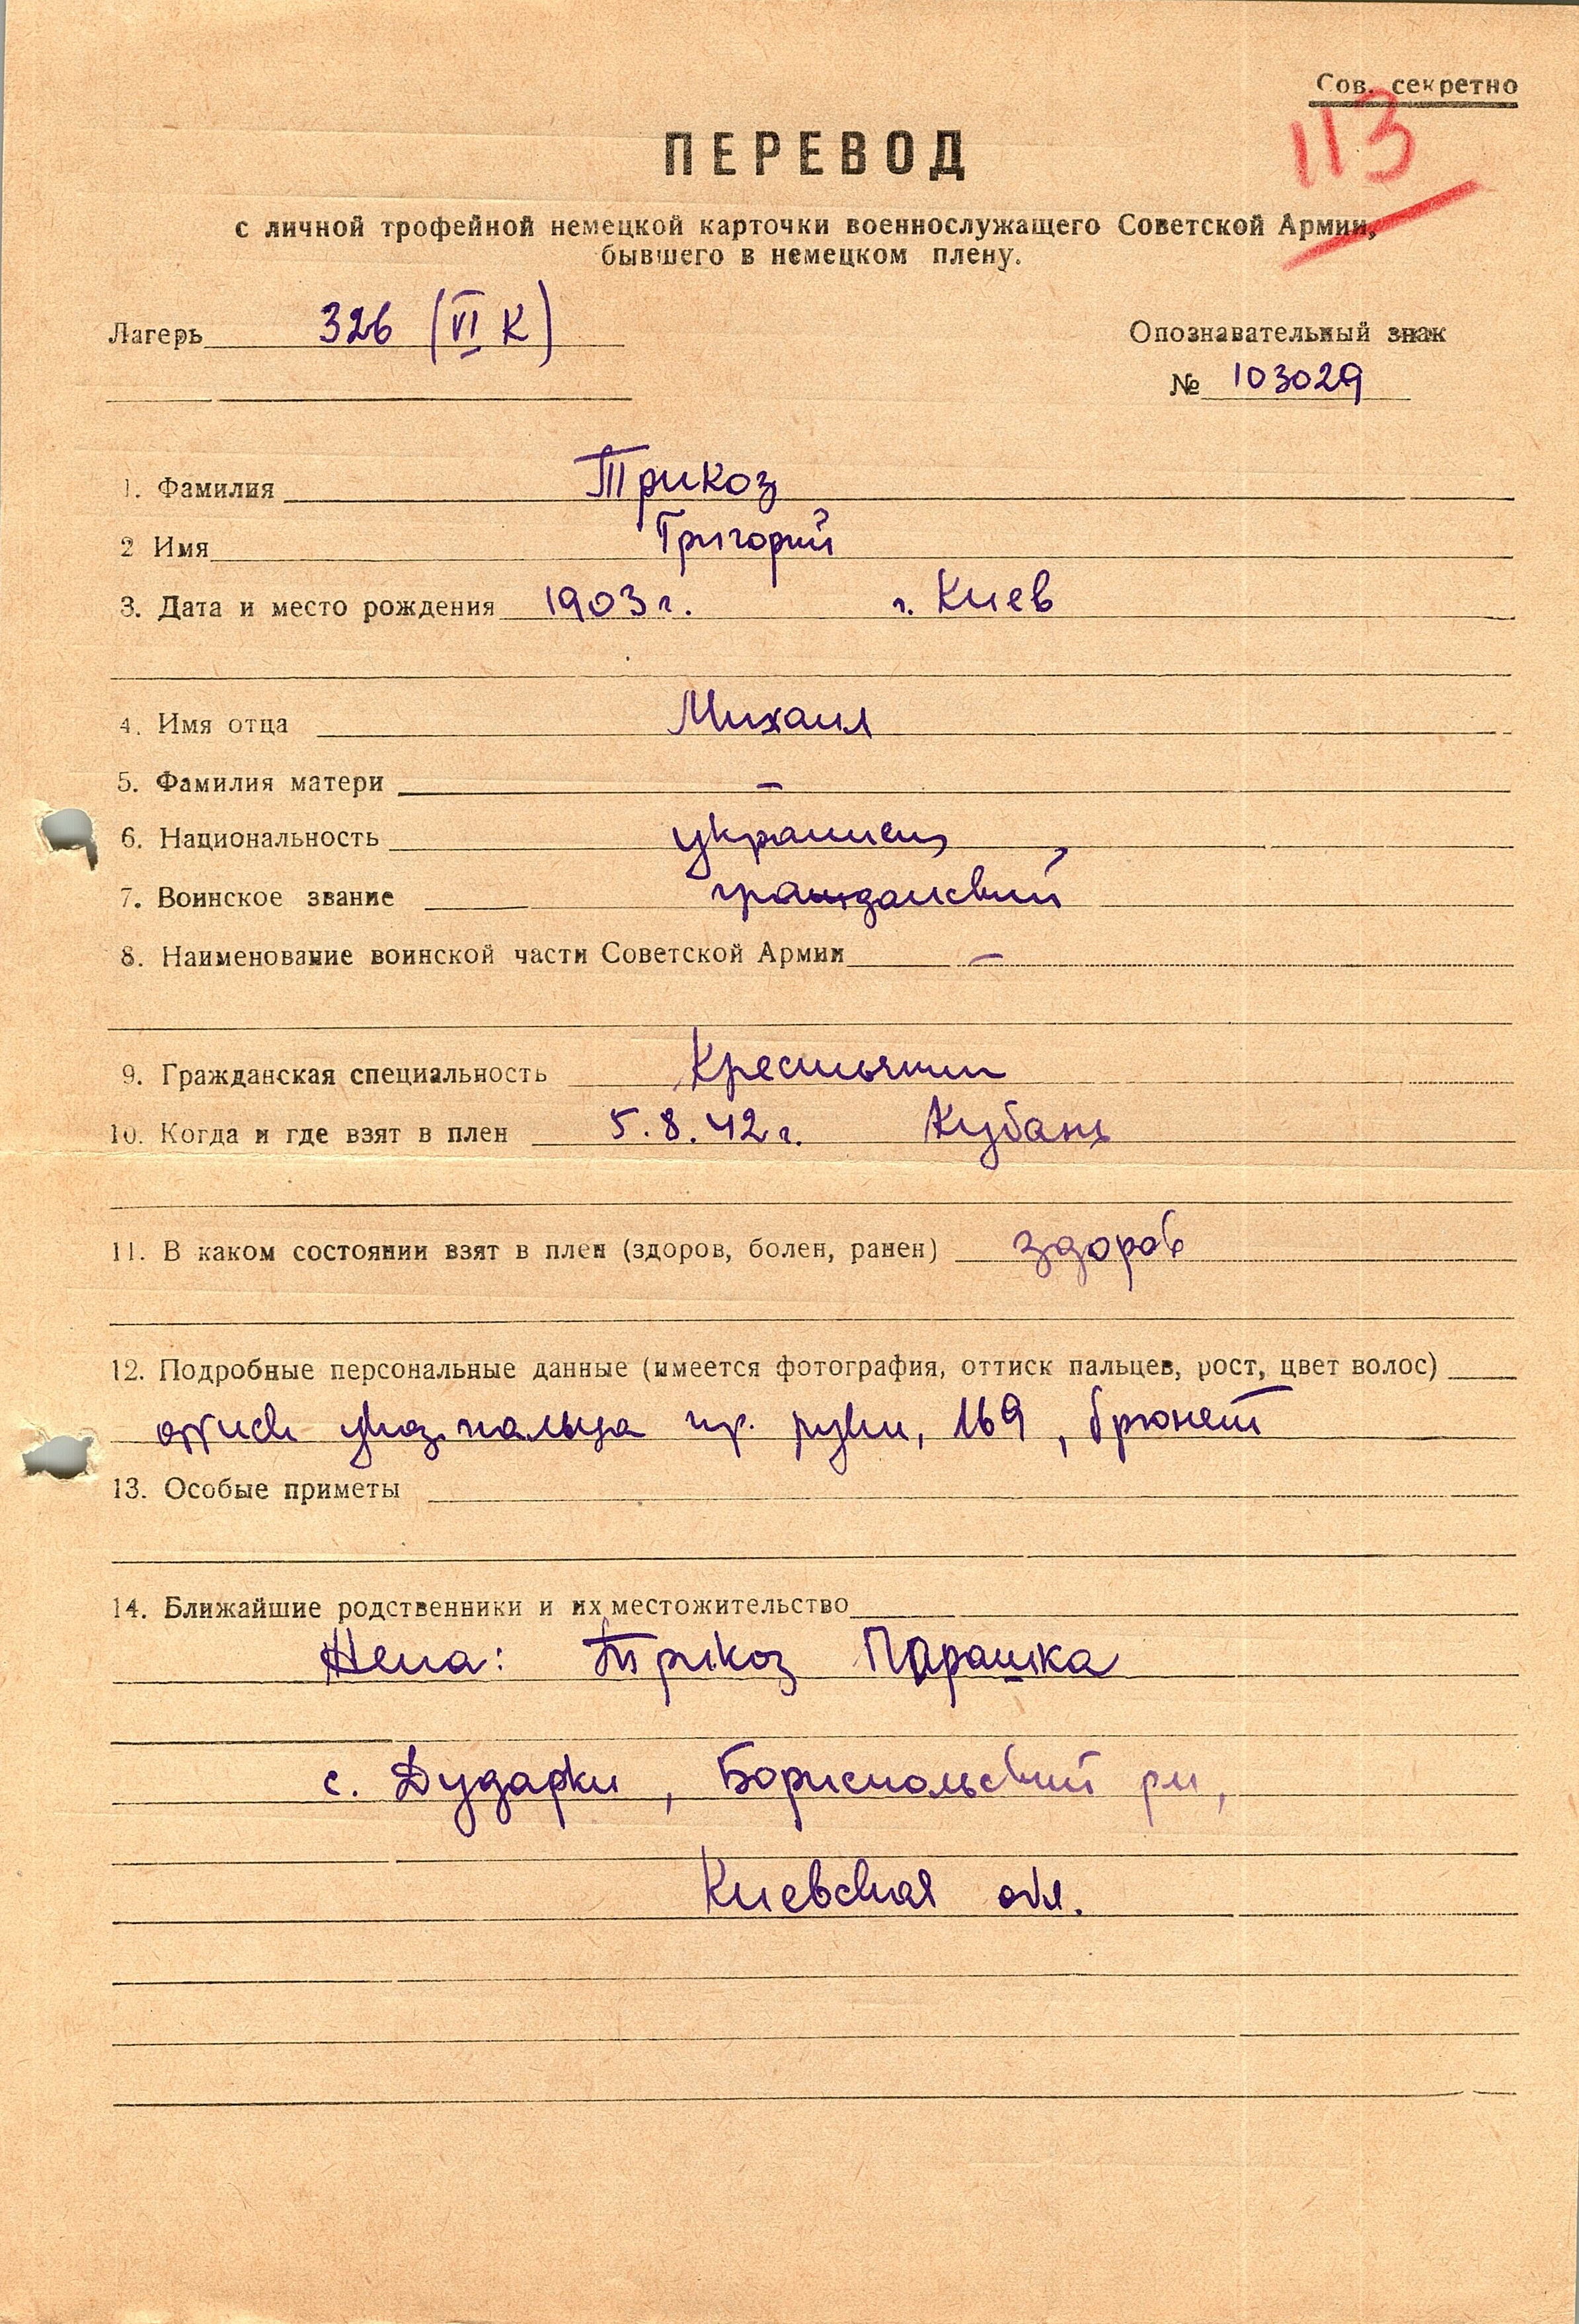 Сов. секретно
113
ПЕРЕВОД
с личной трофейной немецкой карточки военнослужащего Советской Армии,
бывшего в немецком плену.
Лагерь 326 (VI К)
Опознавательный знак
№ 103029
1. Фамилия Трикоз
2 Имя Григорий
3. Дата и место рождения 1903 г. г. Киев
4. Имя отца Михаил
5. Фамилия матери –
6. Национальность украинец
7. Воинское звание гражданский
8. Наименование воинской части Советской Армии –
9. Гражданская специальность Крестьянин
10. Когда и где взят в плен 5.8.42 г. Кубань
11. В каком состоянии взят в плен (здоров, болен, ранен) здоров
12. Подробные персональные данные (имеется фотография, оттиск пальцев, рост, цвет волос)
оттиск указ. пальца пр. руки, 169, брюнет
13. Особые приметы
14. Ближайшие родственники и их местожительство
Жена: Трикоз Парашка
с. Дударки, Бориспольский рн,
Киевская обл.